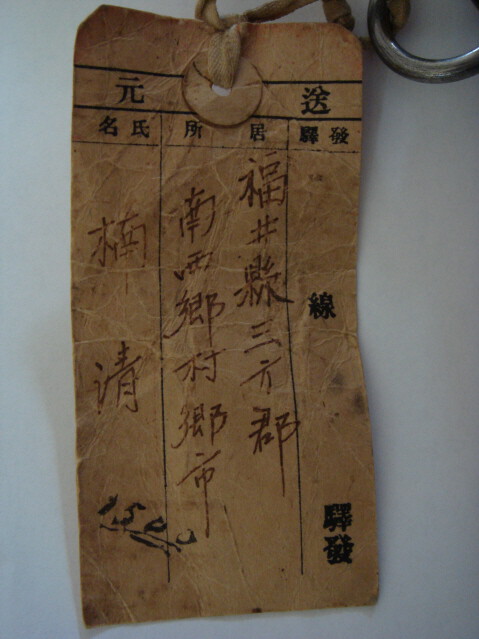 送元
發驛
居所
氏名
線
驛發
福井縣三方郡
南西郷村郷市
楠 清